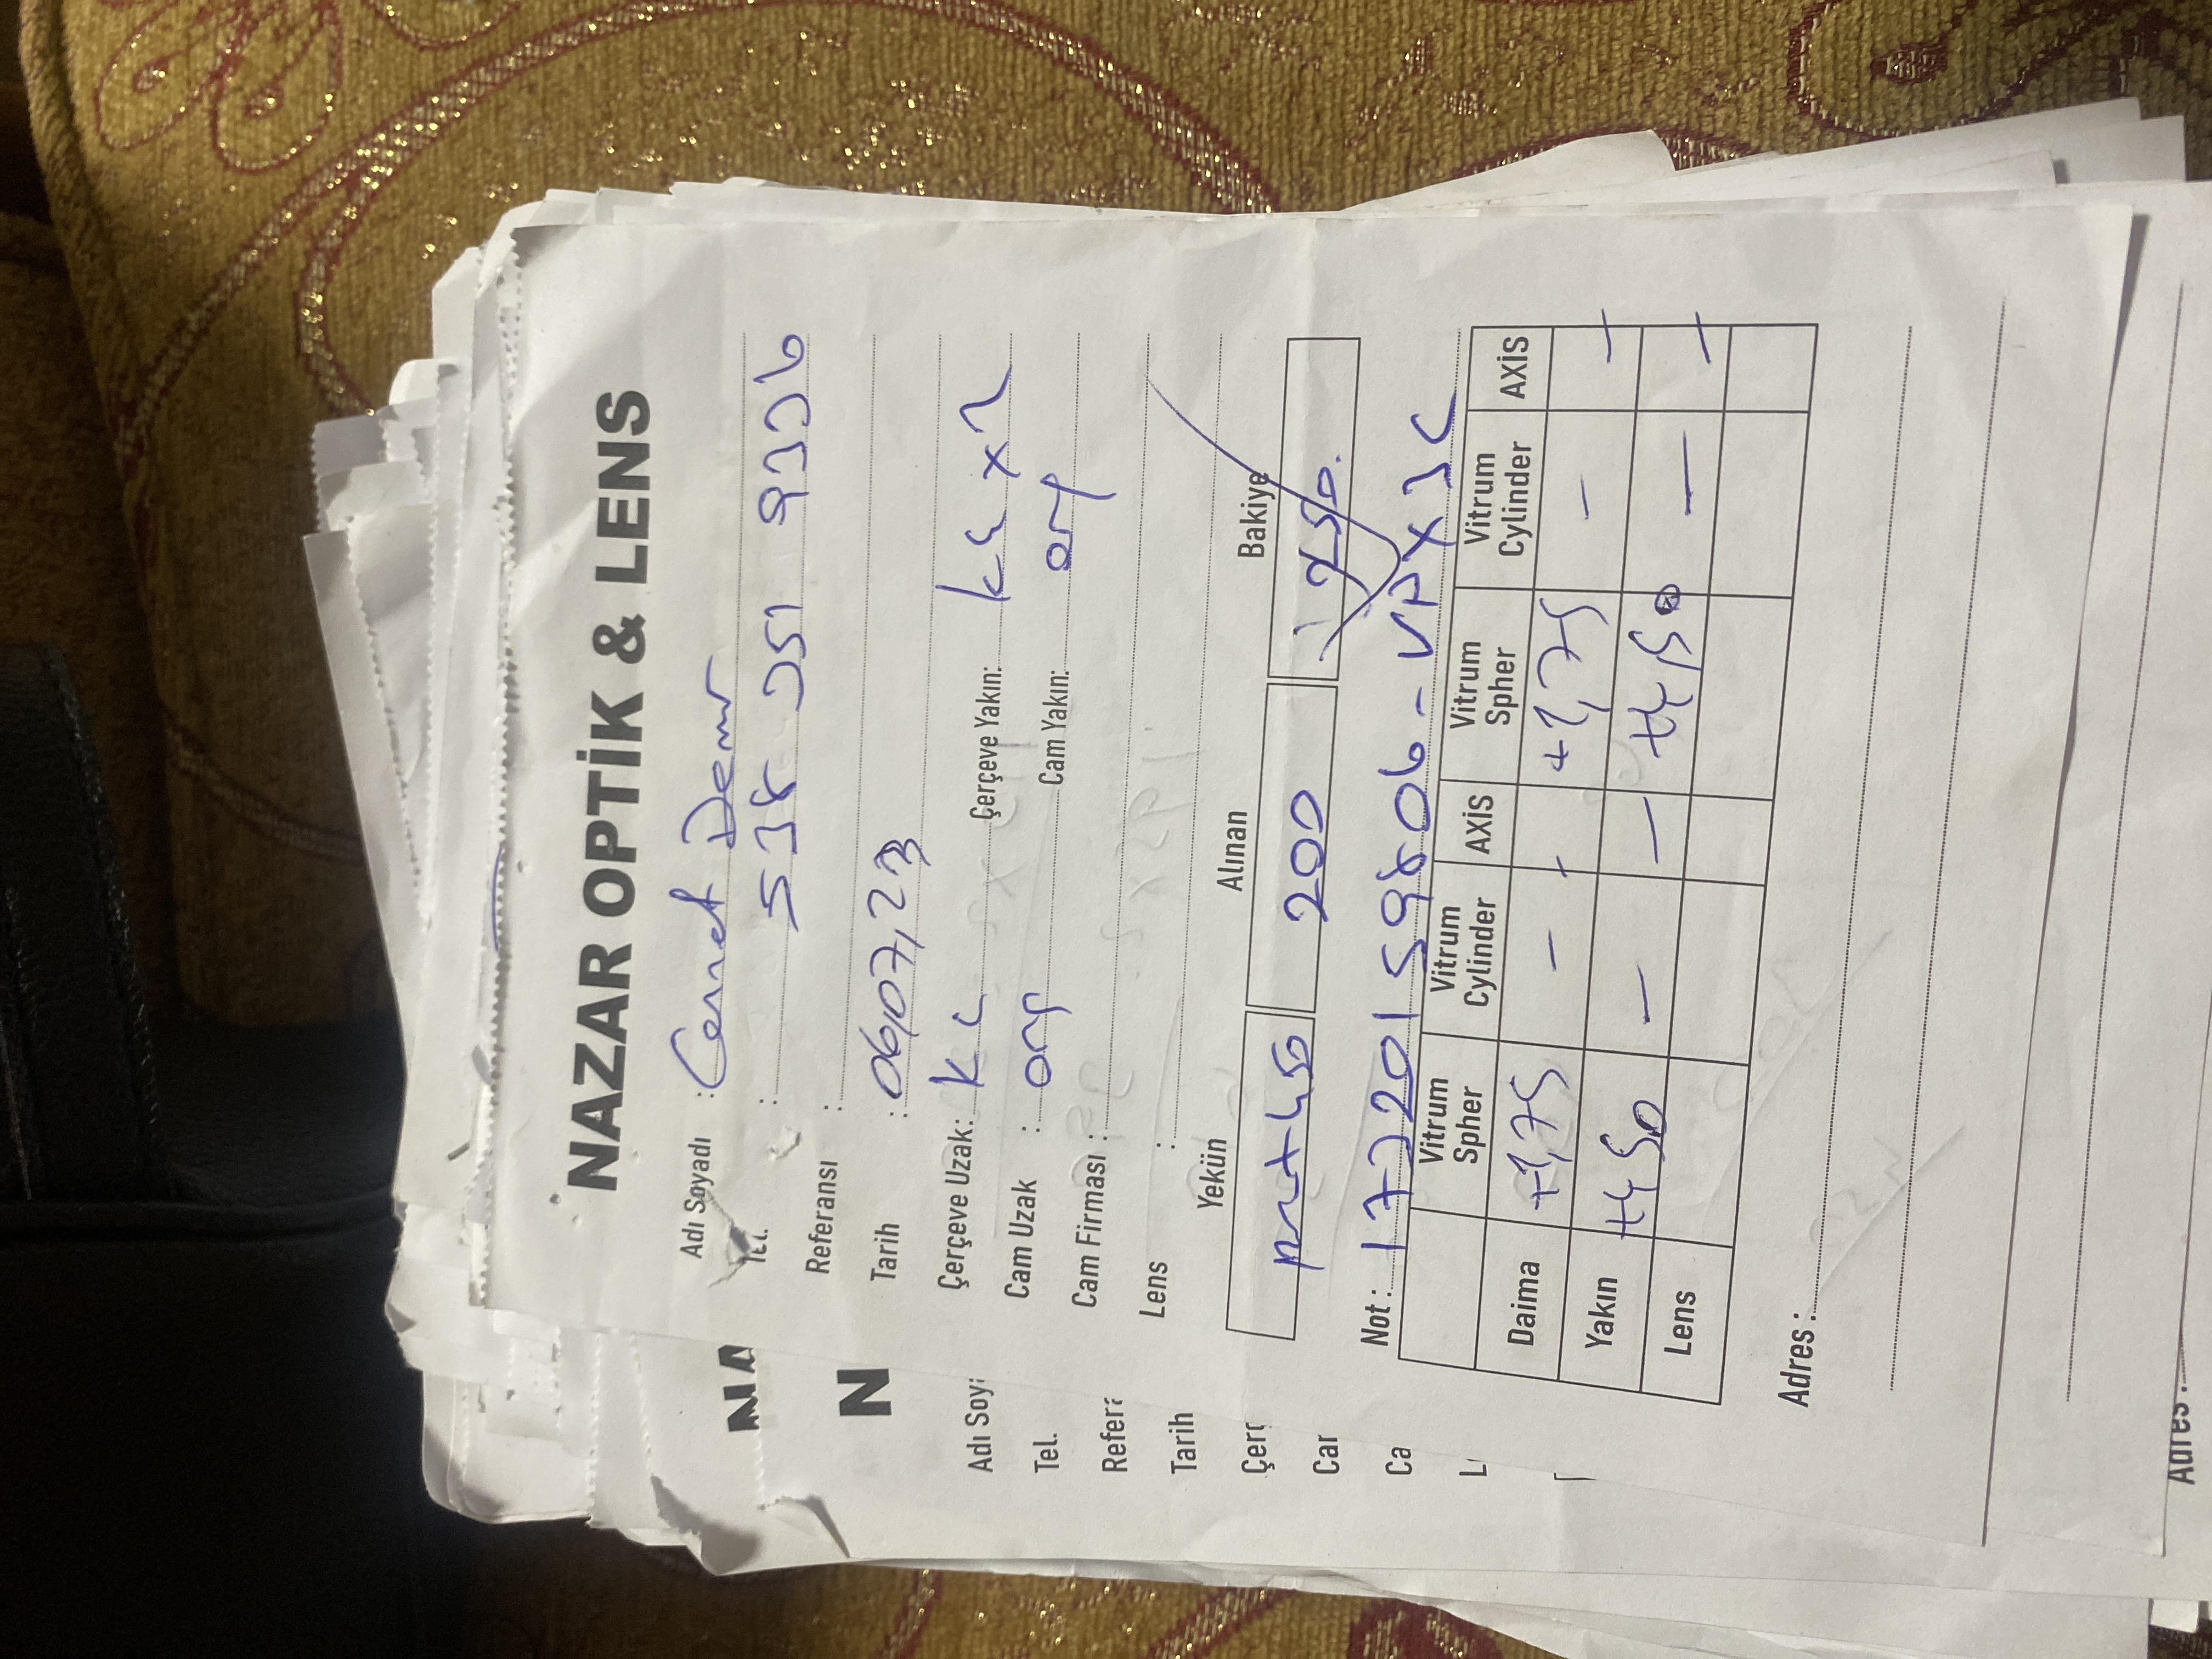 NAZAR OPTİK & LENS
Adı Soyadı : Cennet Demir
Tel. : 538 351 9336
Referansı :
Tarih : 06,07,23
Çerçeve Uzak: kc Çerçeve Yakın: kc x2
Cam Uzak : org Cam Yakın: org
Cam Firması :
Lens :
Yekün Alınan Bakiye
450 200 250.
Not : 17320159806 - VPX3C
Vitrum Spher Vitrum Cylinder AXİS Vitrum Spher Vitrum Cylinder AXİS
Daima +1,75 - - +1,75 - -
Yakın +4,50 - - +4,50 - -
Lens
Adres :
NA
N
Adı Soy
Tel.
Refer
Tarih
Çer
Ca
L
Adres :